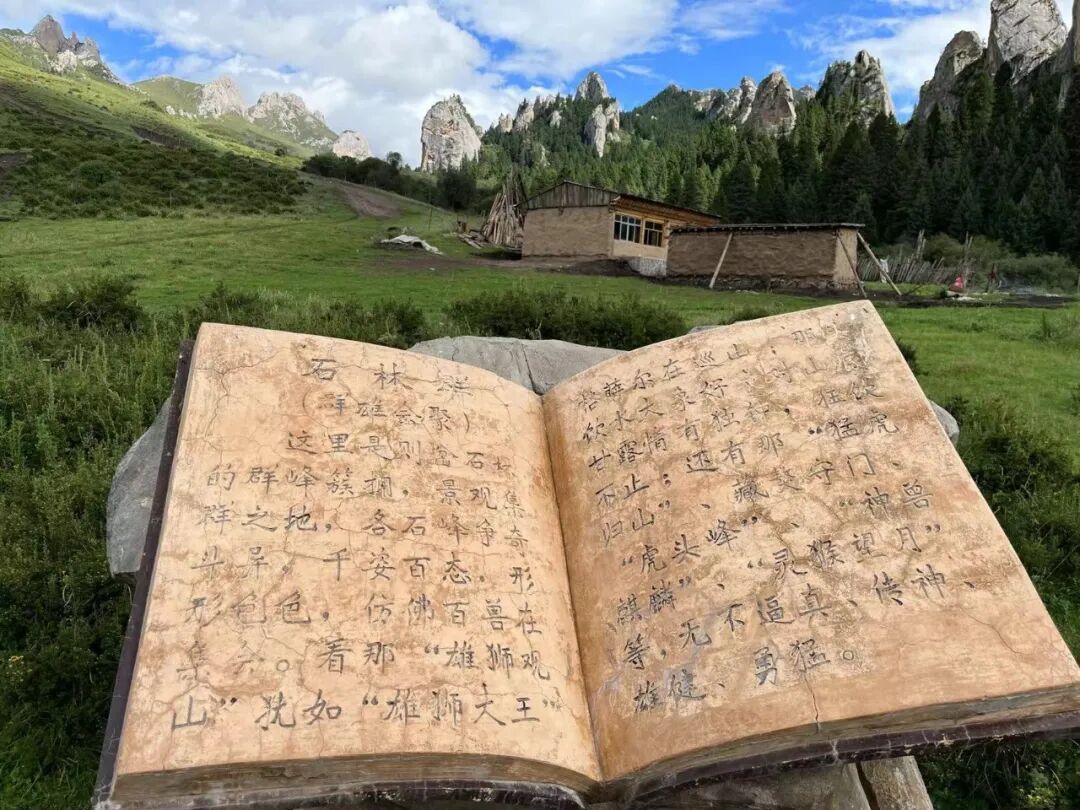 石林群
聚）
这里是则岔石林
的群峰簇拥，景观集
群之地，各石峰争奇
斗异，千姿百态，形
形色色，仿佛百兽在
集会。看那“雄狮观
山”犹如“雄狮大王”
格萨尔在巡山，那
饮水大象好
甘露情有独钟，狂饮
不止；还有那“猛虎
归山”、藏獒守门、
“虎头峰”、“神兽
麒麟”、“灵猴望月”
等，无不逼真、传神、
雄健、勇猛。